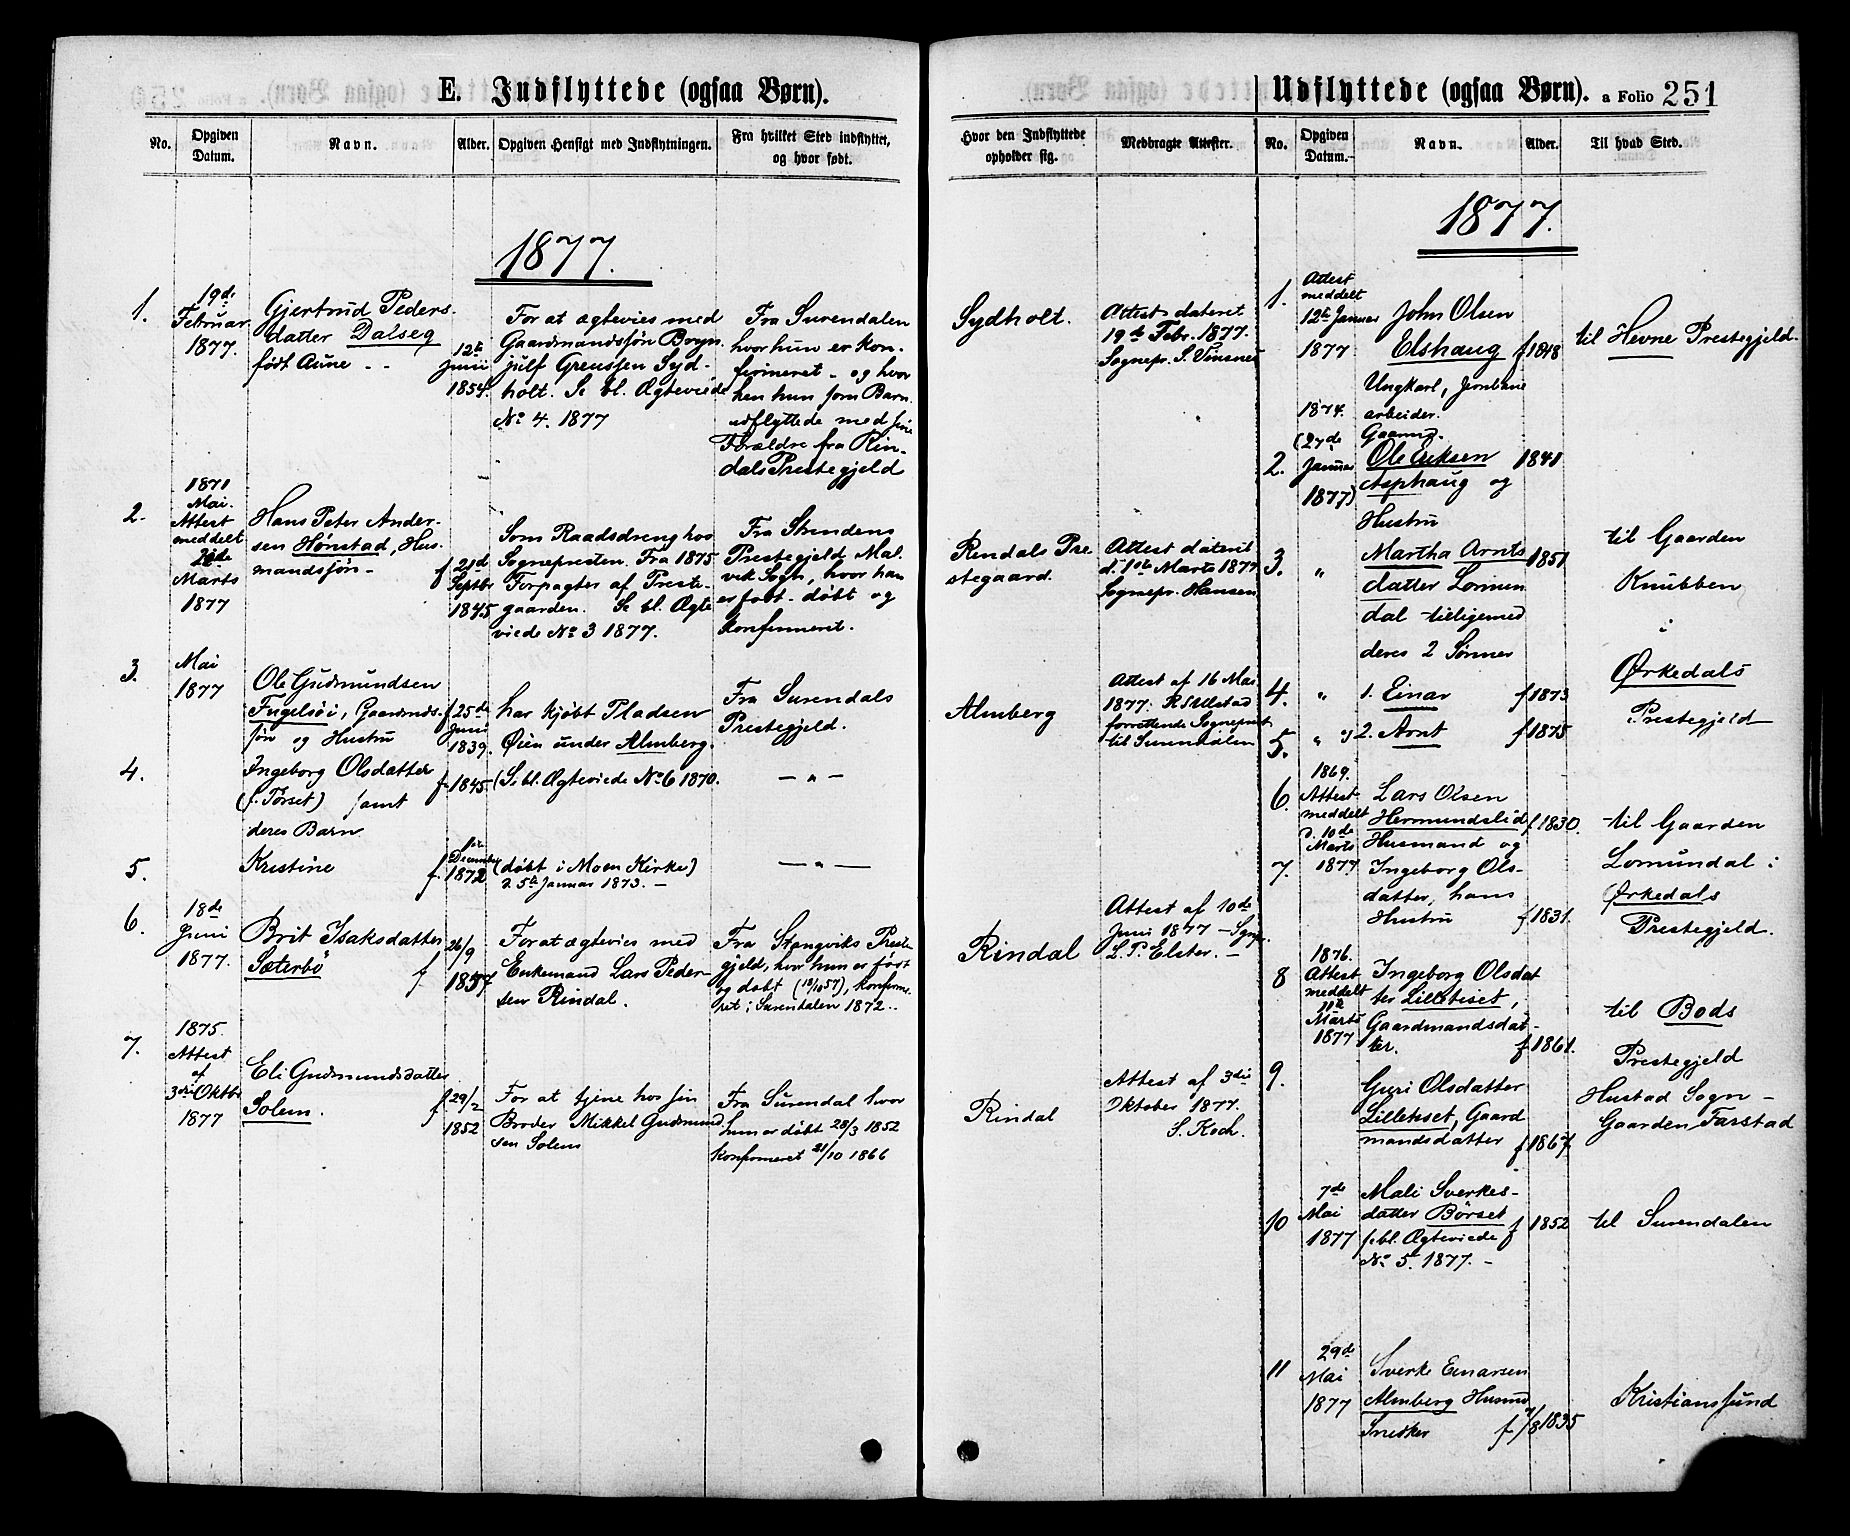 E. Indflyttede (ogsaa Børn).
No.
Opgiven Datum.
Navn.
Alder.
Opgiven Hensigt med Indflytningen.
Fra hvilket Sted indflyttet, og hvor født.
Hvor den Indflyttede opholder sig.
Medbragte Attester.
1877.
1.
19de
Februar
1877.
Gjertrud Peders-
datter Dalseg
født Aune - -
12te
Juni
1854.
For at ægtevies med
Gaardmandssøn Bryn-
julf Syd-
holt. Se bl. Ægteviede
No 4. 1877
Fra Surendalen
hvor hun er kon-
firmeret - og hvor
hen hun som Barn
udflyttede med sine
Forældre fra Rin-
dals Prestegjeld
Sydholt.
Attest dateret
19de Febr. 1877.
Sognepr. S.
2.
1871
Mai.
Attest
meddelt
Marts
1877
Hans Peter Ander-
sen Hønstad, Hus-
mandssøn -
f 21d
Septbr
1845
Som Raadsdreng hos
Sognepresten. Fra 1875
Forpagter af Preste-
gaarden. Se bl. Ægte
viede No 3 1877.
Fra Strindens
Prestegjeld Mal-
vik Sogn, hvor han
er født - døbt og
konfirmeret.
Rindals Pre
stegaard.
Attest dateret
d. 1ste Marts 1877
Sognepr. Hansen
3.
Mai
1877
Ole Gudmundsen
Fugelsøi, Gaardmds-
søn og Hustru
f 25de
Juni
1839.
har kjøbt Pladsen
Øien under Almberg.
Fra Surendals
Prestegjeld.
Almberg
Attest af 16 Mai
1877.
forrettende Sogneprest
til Surendalen
4.
Ingeborg Olsdatter
(f. Tørset) samt
deres Barn
f. 1845
(Se bl. Ægteviede No 6 1870.
- " -
5.
Kristine
f.
1ste
December
1872
(døbt i Moen Kirke)
d. 5te Januar 1873. -
- " -
6.
18de
Juni
1877.
Brit Isaksdatter
Sæterbö
f
26/9
1857
For at ægtevies med
Enkemand Lars Peder-
sen Rindal.
Fra Stangviks Preste
gjeld, hvor hun er født
og døbt (18/10 57), konfirme-
ret i Surendalen 1872..
Rindal
Attest af 10de
Juni 1877 - Sgnpr.
L. P. Elster. -
7.
1875.
Attest
af
3die Oktbr
1877
Eli Gudmundsdatter
Solem.
f 29/2
1852
For at tjene hos sin
Broder Mikkel Gudmund
sen Solem
Fra Surendal hvor
hun er døbt 28/3 1852
konfirmeret 21/10 1866
Rindal
Attest af 3die
Oktober 1877.
S. Koch.
Udflyttede (ogsaa Børn). a Folio 251
No.
Opgiven Datum.
Navn.
Alder.
Til hvad Sted.
1877.
1.
Attest
meddelt
12te Januar
1877
John Olsen
Elshaug f 1848
Ungkarl, Jernbane
arbeider.
til Hevne Prestegjeld.
2.
1874.
(27de
Januar
1877)
Gaarmd.
Ole Eriksen 1841
Asphaug og
Hustru
3.
"
Martha Arnts 1851
datter Lomun
dal tilligemed
deres 2 Sønner
til Gaarden
Knubben
i
Ørkedals
Prestegjeld
4.
"
1. Einar f 1873
5.
" og 2. Arnt f 1875
6.
1869.
Attest
meddelt
d. 10de
Marts
1877
Lars Olsen
Hermundslid f 1830.
Husmand og
7.
Ingeborg Ols-
datter, hans
Hustru f 1831.
til Gaarden
Lomundal i
Ørkedals
Prestegjeld.
8
1876.
Attest
meddelt
Marts
1877
Ingeborg Olsdat
ter Lilletiset,
Gaardmandsdat-
ter. f 1861.
9.
Guri Olsdatter
Lilletiset, Gaard
mandsdatter f 1867.
til Bods
Prestegjeld
Hustad Sogn -
Gaarden Farstad
10
7de
Mai
1877
Mali Sverkes-
datter Børset f 1852
se bl. Ægteviede
No 5. 1877. -
til Surendalen
11
29de
Mai
1877
Sverke Einarsen
Almberg Husmd
Snedker f 7/8 1835
Kristianssund